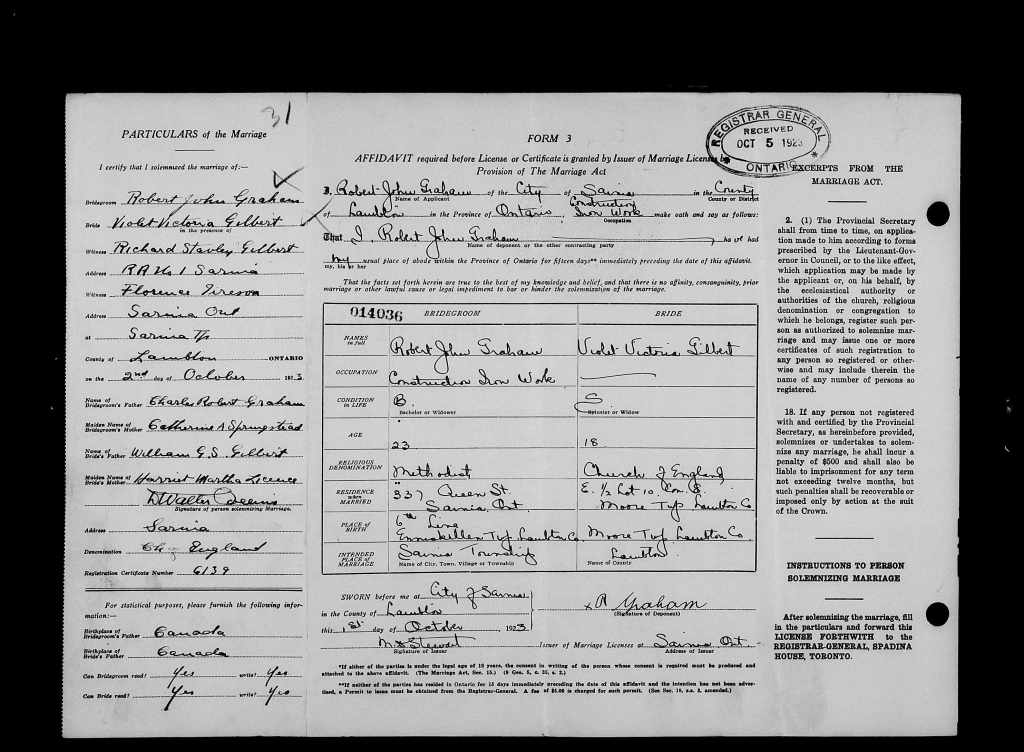 31
PARTICULARS of the Marriage
I certify that I solemnized the marriage of:—
Bridegroom Robert John Graham
Bride Violet Victoria Gilbert
in the presence of
Witness Richard Stavley Gilbert
Address RR No 1 Sarnia
Witness Florence
Address Sarnia Ont
at Sarnia Tp
County of Lambton ONTARIO
on the 2nd day of October 1923
Name of Bridegroom's Father Charles Robert Graham
Maiden Name of Bridegroom's Mother Catherine A Springstead
Name of Bride's Father William G.S. Gilbert
Maiden Name of Bride's Mother Harriet Martha
Walter
Signature of person solemnizing Marriage.
Address Sarnia
Denomination Ch of England
Registration Certificate Number 6139
For statistical purposes, please furnish the following information:—
Birthplace of Bridegroom's Father Canada
Birthplace of Bride's Father Canada
Can Bridegroom read? Yes write? Yes
Can Bride read? Yes write? Yes
FORM 3
AFFIDAVIT required before License or Certificate is granted by Issuer of Marriage Licenses by
Provision of The Marriage Act
I, Robert John Graham of the City of Sarnia in the County
Name of Applicant County or District
of Lambton in the Province of Ontario, Construction Iron Work make oath and say as follows:
Occupation
That I, Robert John Graham ha ve had
Name of deponent or the other contracting party
my usual place of abode within the Province of Ontario for fifteen days** immediately preceding the date of this affidavit.
my, his or her
That the facts set forth herein are true to the best of my knowledge and belief, and that there is no affinity, consanguinity, prior
marriage or other lawful cause or legal impediment to bar or hinder the solemnization of the marriage.
014036 BRIDEGROOM BRIDE
NAMES in full Robert John Graham Violet Victoria Gilbert
OCCUPATION Construction Iron Work
CONDITION IN LIFE B. S
Bachelor or Widower Spinster or Widow
AGE 23 18
RELIGIOUS DENOMINATION Methodist Church of England
RESIDENCE when MARRIED 337 Queen St. Sarnia, Ont. E. 1/2 Lot 10. Con. Moore Tvp Lambton Co
PLACE OF BIRTH 6th Line Enniskillen Tvp. Lambton Co. Moore Tvp Lambton Co.
INTENDED PLACE OF MARRIAGE Sarnia Township Lambton
Name of City, Town, Village or Township Name of County
SWORN before me at City of Sarnia
in the County of Lambton
this 1st day of October, 1923
x R Graham
(Signature of Deponent)
Stewart Issuer of Marriage Licenses at Sarnia Ont.
Signature of Issuer Address of Issuer
*If either of the parties is under the legal age of 18 years, the consent in writing of the person whose consent is required must be produced and
attached to the above affidavit. (The Marriage Act, Sec. 15.) (9 Geo. 5, c. 35, s. 2.)
**If neither of the parties has resided in Ontario for 15 days immediately preceding the date of this affidavit and the intention has not been advertised, a Permit to issue must be obtained from the Registrar-General. A fee of $5.00 is charged for such permit. (See Sec. 19, s.s. 2, amended.)
REGISTRAR GENERAL
RECEIVED
OCT 5 1923
ONTARIO
EXCERPTS FROM THE
MARRIAGE ACT.
2. (1) The Provincial Secretary
shall from time to time, on application
made to him according to forms
prescribed by the Lieutenant-Governor
in Council, or to the like effect,
which application may be made by
the applicant or, on his behalf, by
the ecclesiastical authority or
authorities of the church, religious
denomination or congregation to
which he belongs, register such person
as authorized to solemnize marriage
and may issue one or more
certificates of such registration to
any person so registered or otherwise
and may include therein the
name of any number of persons so
registered.
18. If any person not registered
with and certified by the Provincial
Secretary, as hereinbefore provided,
solemnizes or undertakes to solemnize
any marriage, he shall incur a
penalty of $500 and shall also be
liable to imprisonment for any term
not exceeding twelve months, but
such penalties shall be recoverable or
imposed only by action at the suit
of the Crown.
INSTRUCTIONS TO PERSON
SOLEMNIZING MARRIAGE
After solemnizing the marriage, fill
in the particulars and forward this
LICENSE FORTHWITH to the
REGISTRAR-GENERAL, SPADINA
HOUSE, TORONTO.